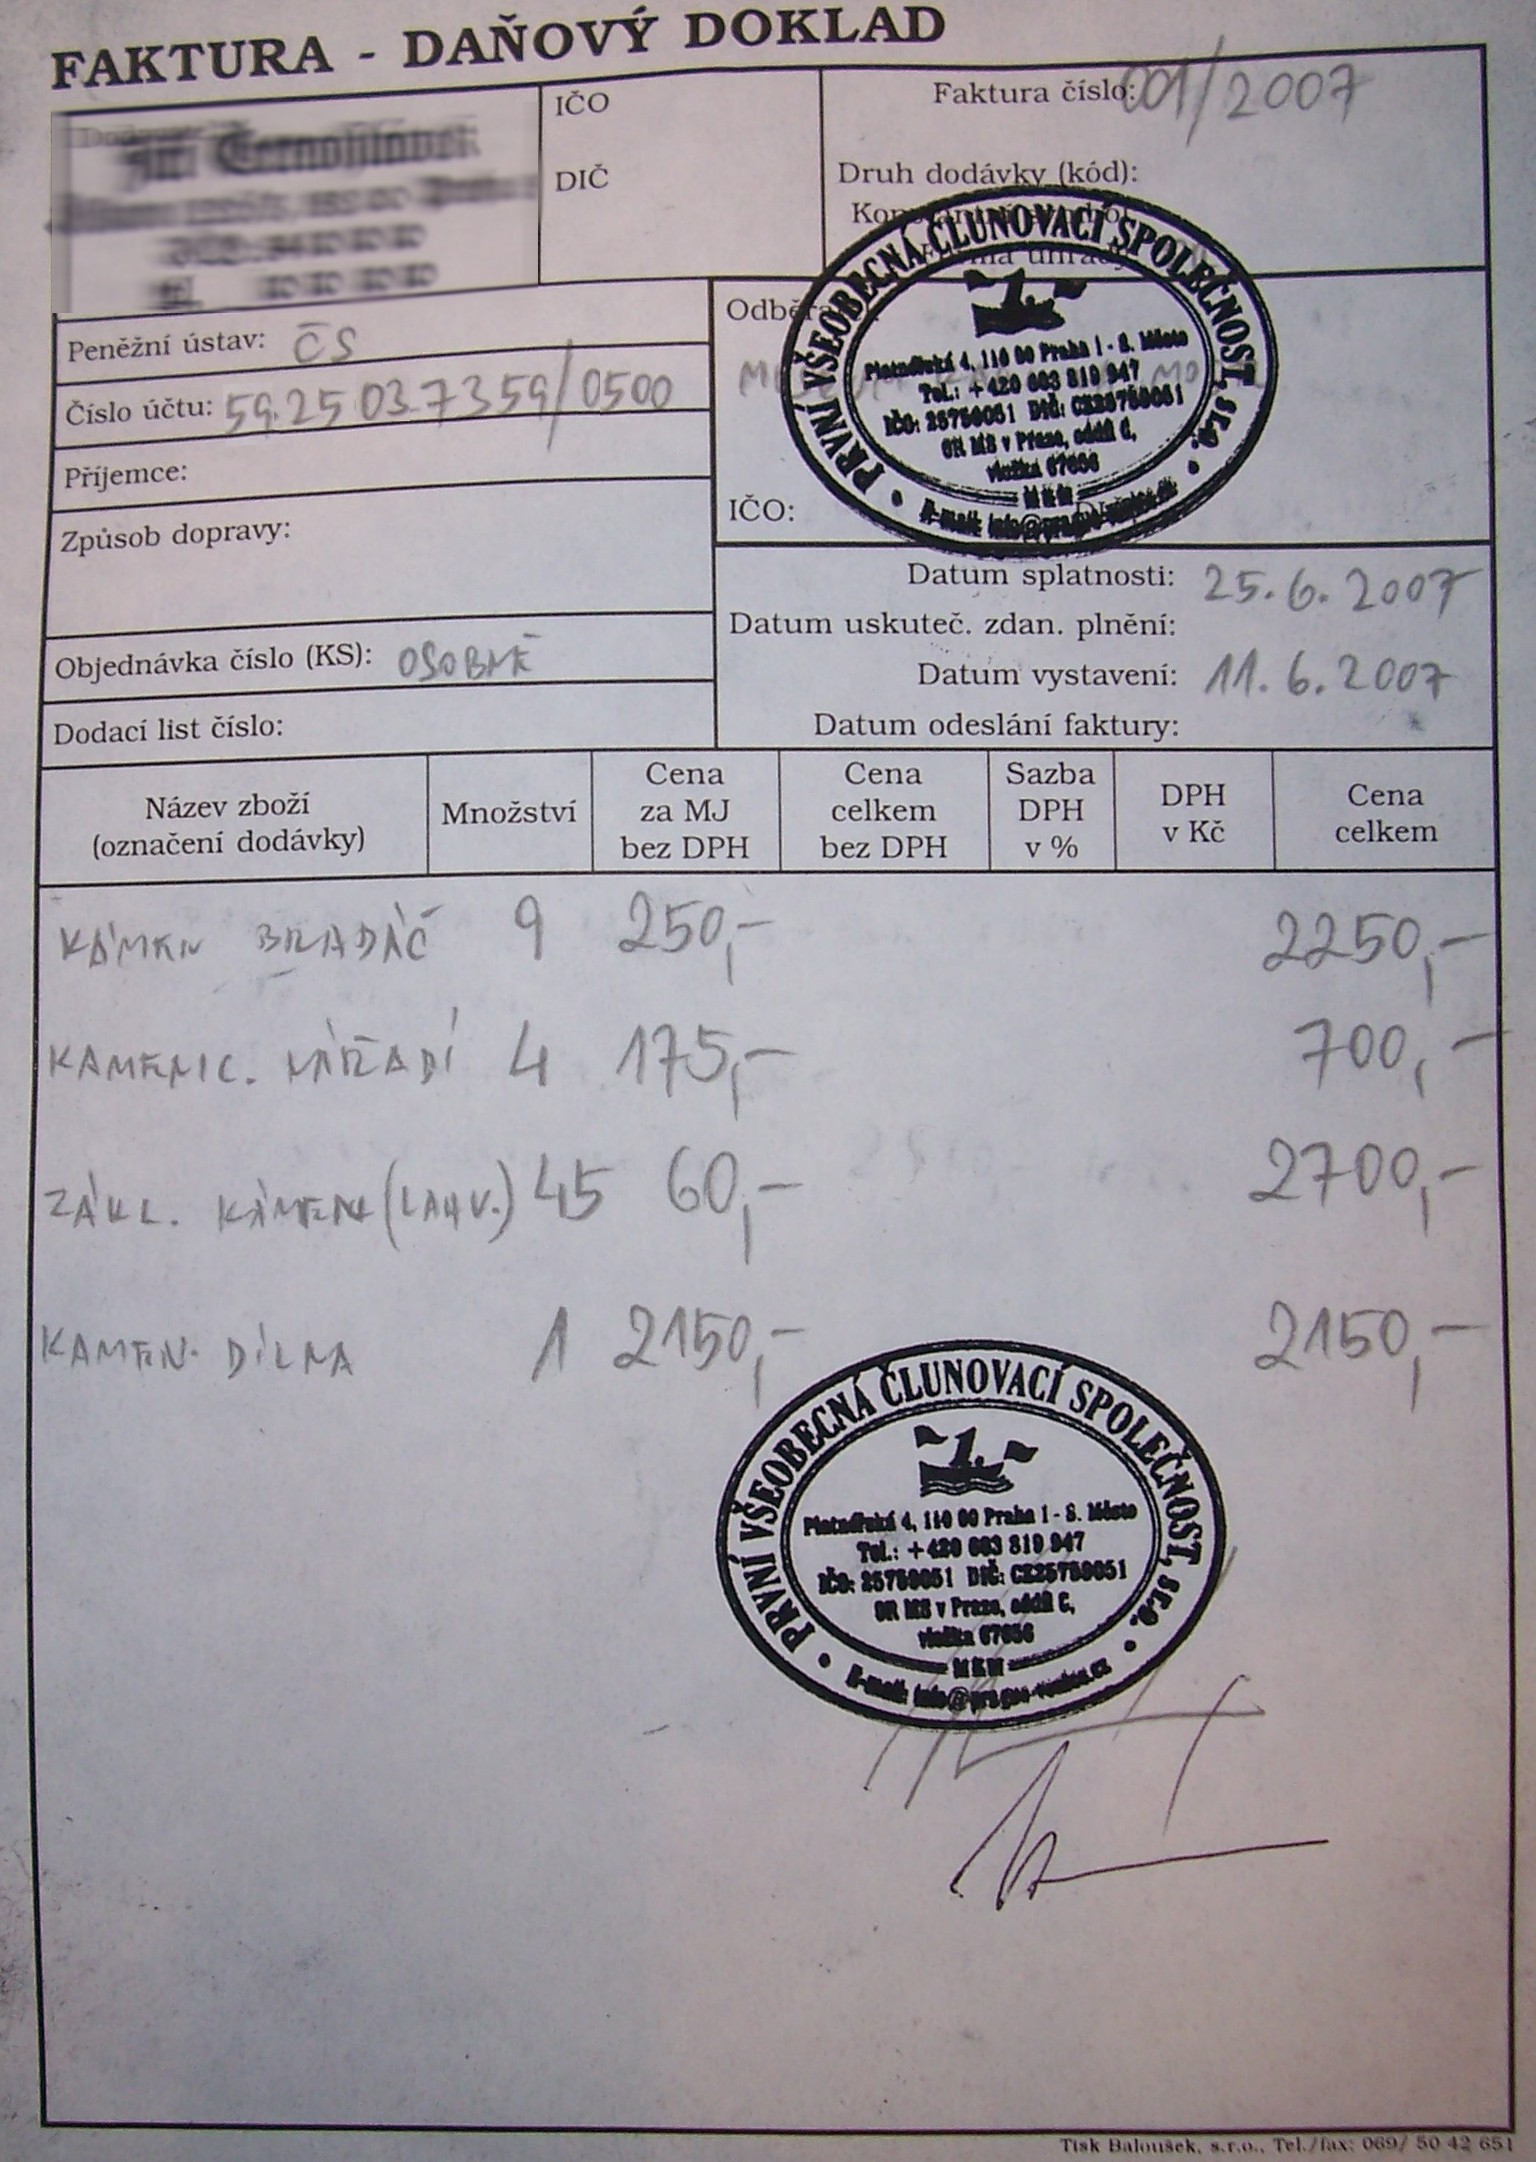 FAKTURA - DAŇOVÝ DOKLAD
IČO
DIČ
Faktura číslo: 001/2007
Druh dodávky (kód):
Peněžní ústav: ČS
Číslo účtu: 59.25 03.7359/0500
Příjemce:
Způsob dopravy:
Objednávka číslo (KS): OSOBNĚ
Dodací list číslo:
IČO:
PRVNÍ VŠEOBECNÁ ČLUNOVACÍ SPOLEČNOST, s.r.o.
Platnéřská 4, 110 00 Praha 1 - S. Město
Tel.: +420 603 819 947
IČO: 25759051 DIČ: CZ25759051
OR MS v Praze, oddíl C,
vložka 67656
MKM
Datum splatnosti: 25.6.2007
Datum uskuteč. zdan. plnění:
Datum vystavení: 11.6.2007
Datum odeslání faktury:
Název zboží (označení dodávky) Množství Cena za MJ bez DPH Cena celkem bez DPH Sazba DPH v % DPH v Kč Cena celkem
KÁMEN BRADÁČ 9 250,- 2250,-
KAMENIC. NÁŘADÍ 4 175,- 700,-
ZÁKL. KÁMEN (LAHV.) 45 60,- 2700,-
KAMEN. DÍLNA 1 2150,- 2150,-
PRVNÍ VŠEOBECNÁ ČLUNOVACÍ SPOLEČNOST, s.r.o.
1.
Platnéřská 4, 110 00 Praha 1 - S. Město
Tel.: +420 603 819 947
IČO: 25759051 DIČ: CZ25759051
OR MS v Praze, oddíl C,
vložka 67656
MKM
E-mail: info@prague-venice.cz
Tisk Baloušek, s.r.o., Tel./fax: 069/ 50 42 651